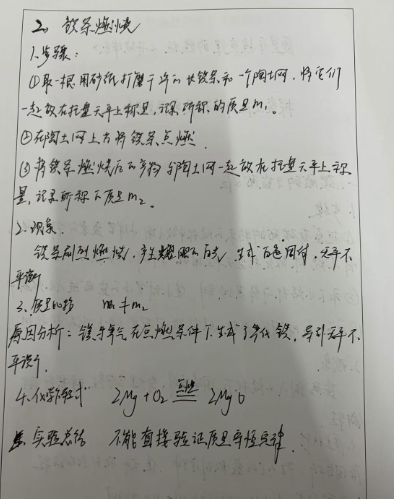 2. 镁条燃烧
1.步骤:
①取一根用砂纸打磨干净的长镁条和一个陶土网,将它们
一起放在托盘天平上称量,记录所称的质量m₁。
②在陶土网上方将镁条点燃.
③将镁条燃烧后的产物与陶土网一起放在托盘天平上称
量,记录所称的质量m₂。
2.现象
镁条剧烈燃烧,产生耀眼的白光,生成白色固体,天平不
平衡
3.质量比较 m₁≠m₂
原因分析:镁与氧气在点燃条件下生成了氧化镁,导致天平不
平衡.
4.化学方程式 2Mg+O₂ 点燃 2MgO
5.实验总结 不能直接验证质量守恒定律.